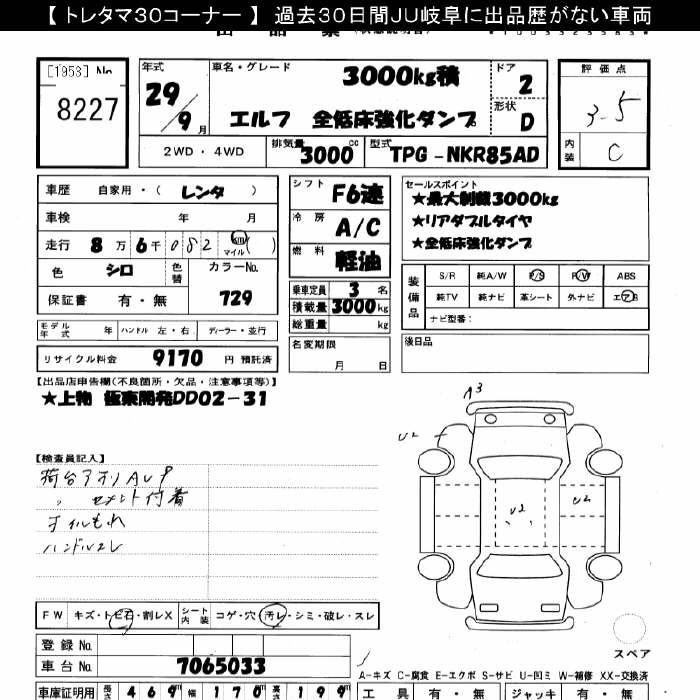 【 トレタマ30コーナー 】 過去30日間JU岐阜に出品歴がない車両
[1953] No
8227
年式
29/9月
車名・グレード
3000kg積
エルフ 全低床強化ダンプ
ドア
2
形状
D
評価点
3.5
内装
C
2WD・4WD
排気量 3000 cc
型式 TPG-NKR85AD
車歴 自家用・( レンタ )
車検 年 月
走行 8万6千082 km マイル
色 シロ
色替
カラーNo.
729
保証書 有・無
シフト F6速
冷房 A/C
燃料 軽油
乗車定員 3 名
積載量 3000 kg
総重量 kg
セールスポイント
★最大制載3000kg
★リアダブルタイヤ
★全低床強化ダンプ
装備品
S/R 純A/W P/S P/W ABS
純TV 純ナビ 革シート 外ナビ エアB
ナビ型番：
モデル年式 年 ハンドル 左・右 ディーラー・並行
リサイクル料金 9170 円 預託済
名変期限
月 日
後日品
【出品店申告欄(不良箇所・欠品・注意事項等)】
★上物 極東開発DD02-31
【検査員記入】
荷台アオリAU9
〃 セメント付着
オイルもれ
ハンドルスレ
A3
U2
U2
U2
FW キズ・トビ石・割レX
シート内装 コゲ・穴・汚レ・シミ・破レ・スレ
登録No.
車台No. 7065033
スペア
A-キズ C-腐食 E-エクボ S-サビ U-凹ミ W-補修 XX-交換済
車庫証明用 長さ 469 幅 170 高さ 199
工具 有・無 ジャッキ 有・無